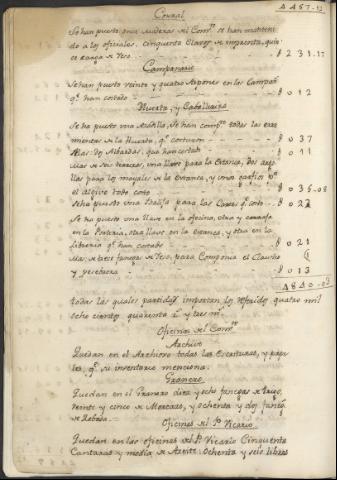 4457-15
Corral
Se han puesto onse maderas el Comb.to se han mantteni
do a los oficiales. cinquenta Clavos de imprenta, quin
ce cargas de Yeso # 231.17
Campanario
Se han puesto veinte y quatro tapones en las Campan.s
q.e han costado # 012
Huerta, y Caballeriza
Se ha puesto una todas las
de la Huerta, q.e costaron # 037
Mas dos Albardas, que han costado # 011
Mas se han una llave para la Estanca, dos
llas para los de la Estanca, y unos p.a
el algive todo costó # 036-08
Se ha puesto una para las q.e costó # 022
Se ha puesto una llave en la oficina, otra y
en la Porteria, otra llave en la Estanca, y otra en la
Libreria q.e han costado # 021
Mas se trece fanegas de Yeso para Componer el Claustro
y # 013
4840-
todas las quales partidas importan los referidos quatro mil
ocho cientos quarenta r.s y tres m.s
Oficinas del Comb.to
Archivo
Quedan en el Archivo todas las Escrituras, y pape
les q.e su inventario menciona.
Granero
Quedan en el Granero diez y ocho fanegas de trigo,
veinte y cinco de y ochenta y dos faneg.s
de Cebada.
Oficinas del P.e Vicario
Quedan en las oficinas del P.e Vicario Cinquenta
Cantaras y media de Azeite. Ochenta y seis libras